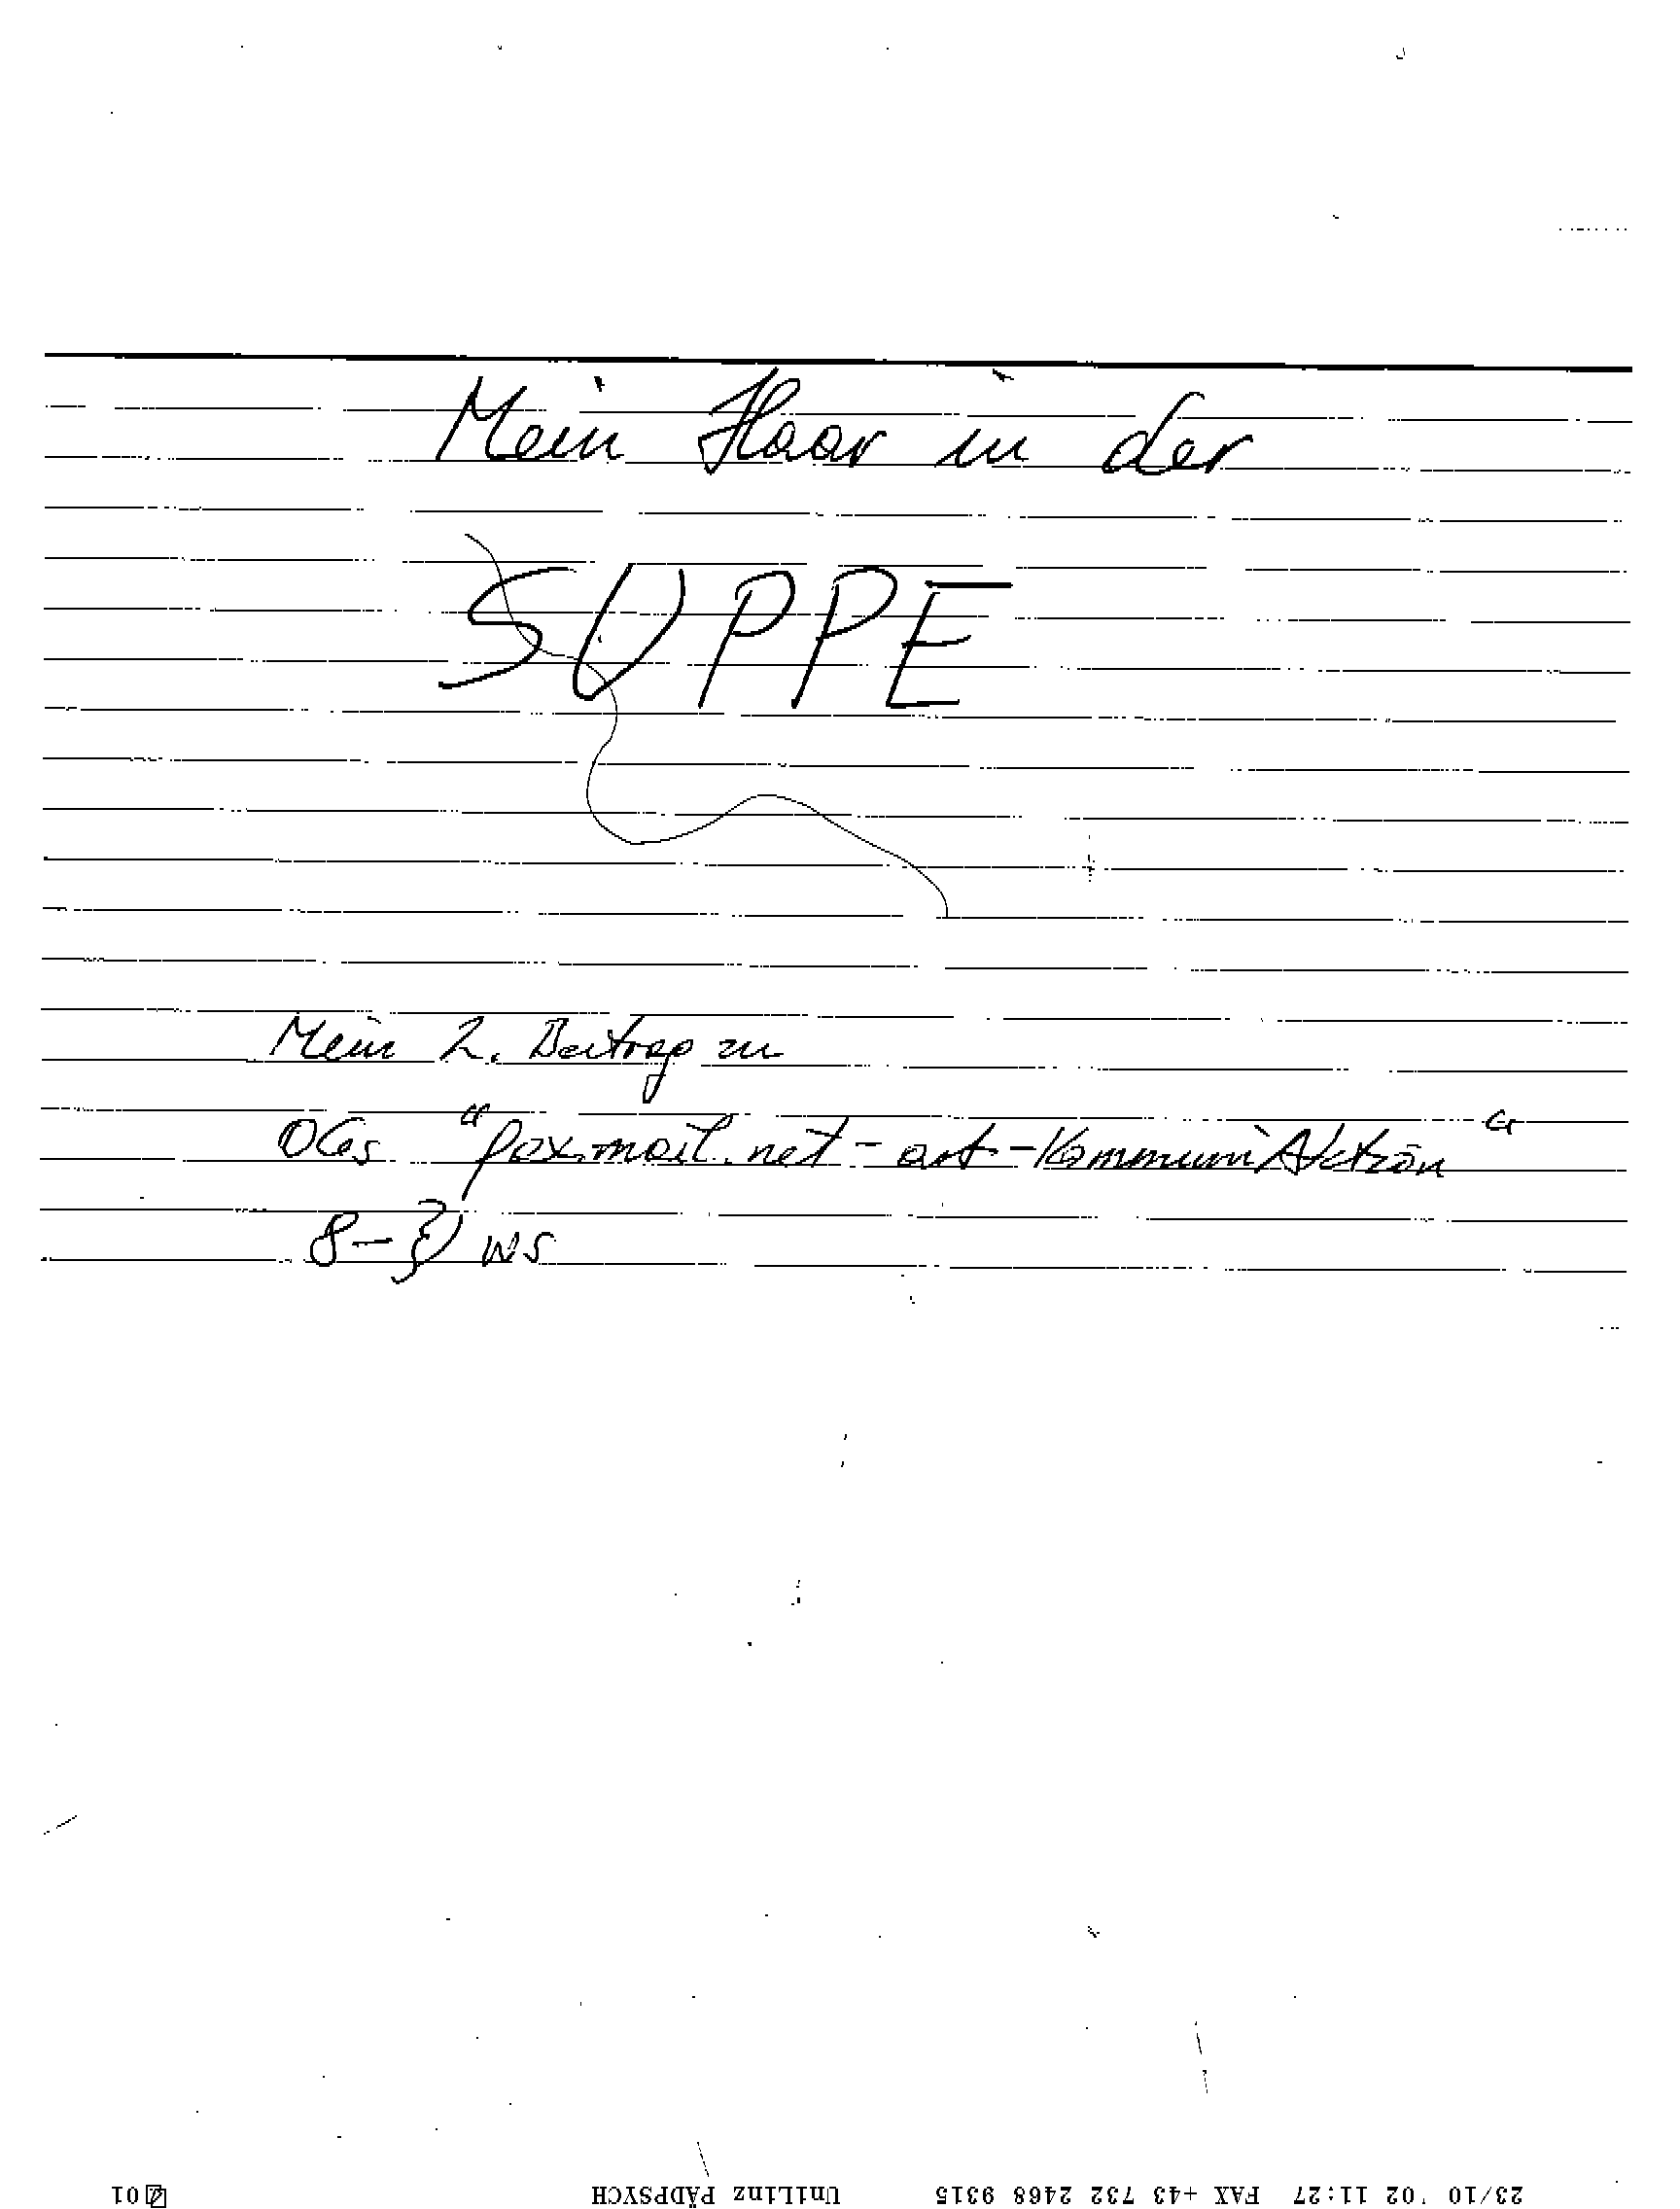 Mein Haar in der
SUPPE
Mein 2. Beitrag zu
"fax.mail.net-art-KommuniAktion"
8-}) ws
23/10 '02 11:27 FAX +43 732 2468 9315 UniLinz PÄDPSYCH 01